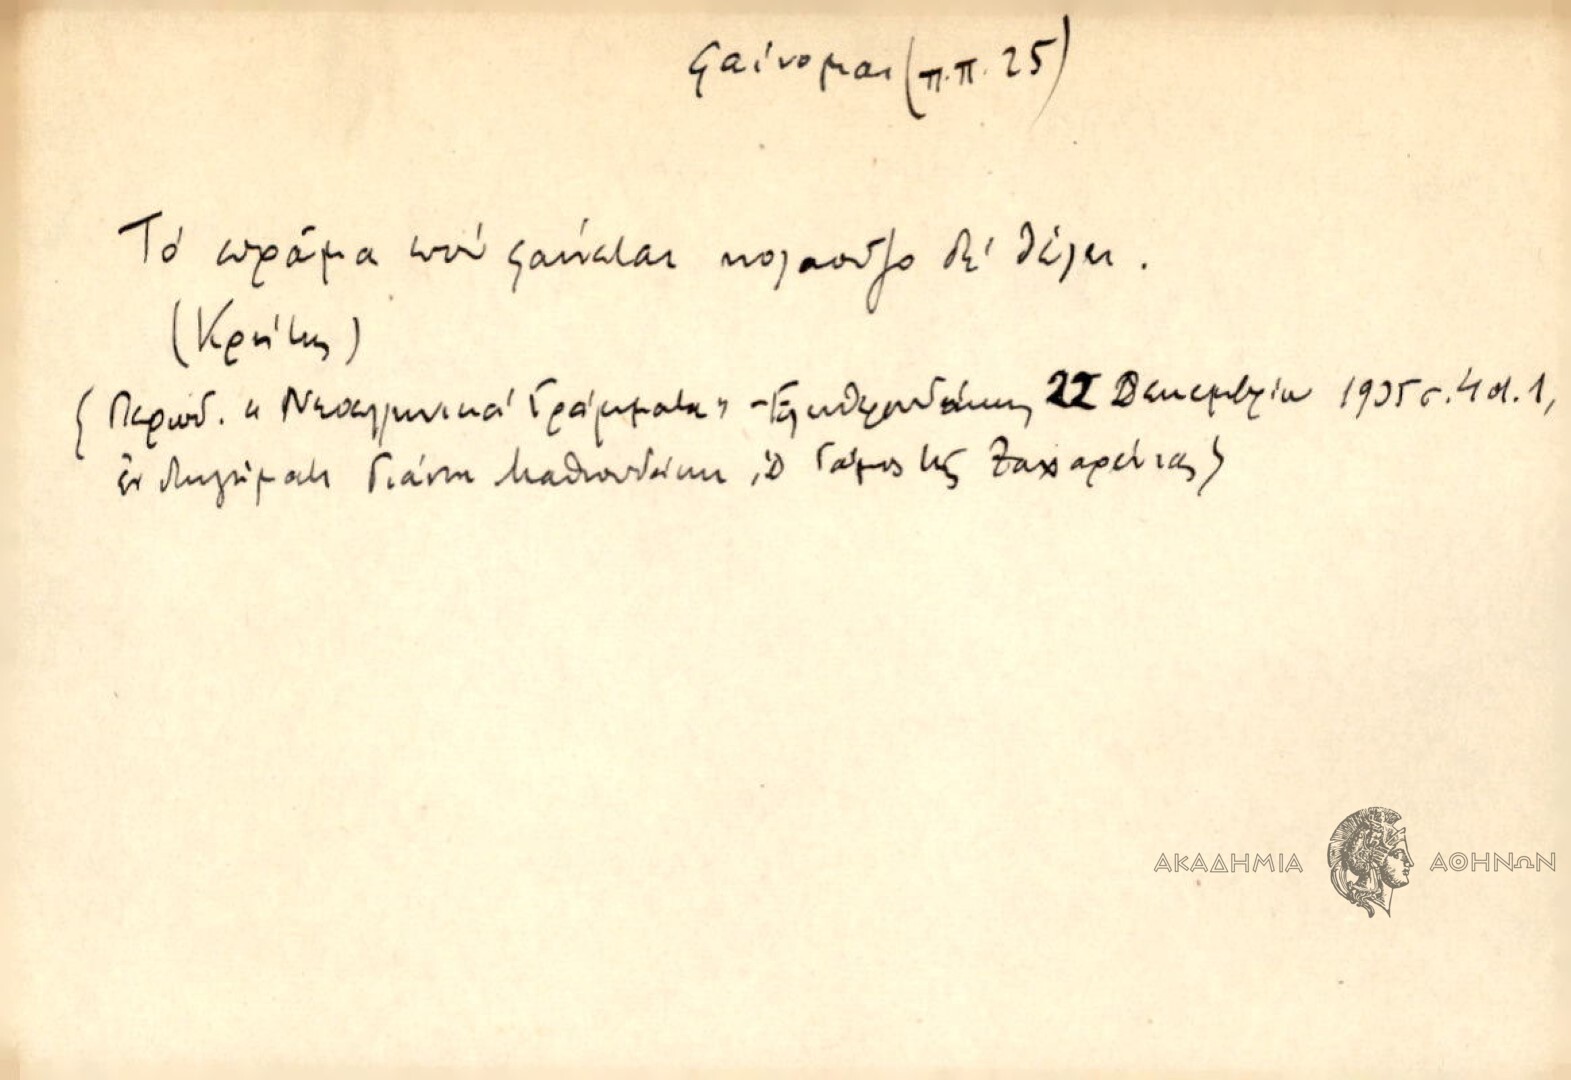 φαίνομαι (π.π. 25)
Τό πρᾶμα πού φαίνεται κολαοῦζο δέ θέλει.
(Κρήτης)
(Περιοδ. «Νεοελληνικά Γράμματα» - Ἐλευθερουδάκης 22 Δεκεμβρίου 1935 σ. 4 στ. 1,
ἐν διηγήματι Γιάννη Μαθιουδάκη, Ὁ Γάμος τῆς Ζαχαρένιας)
ΑΚΑΔΗΜΙΑ ΑΘΗΝΩΝ